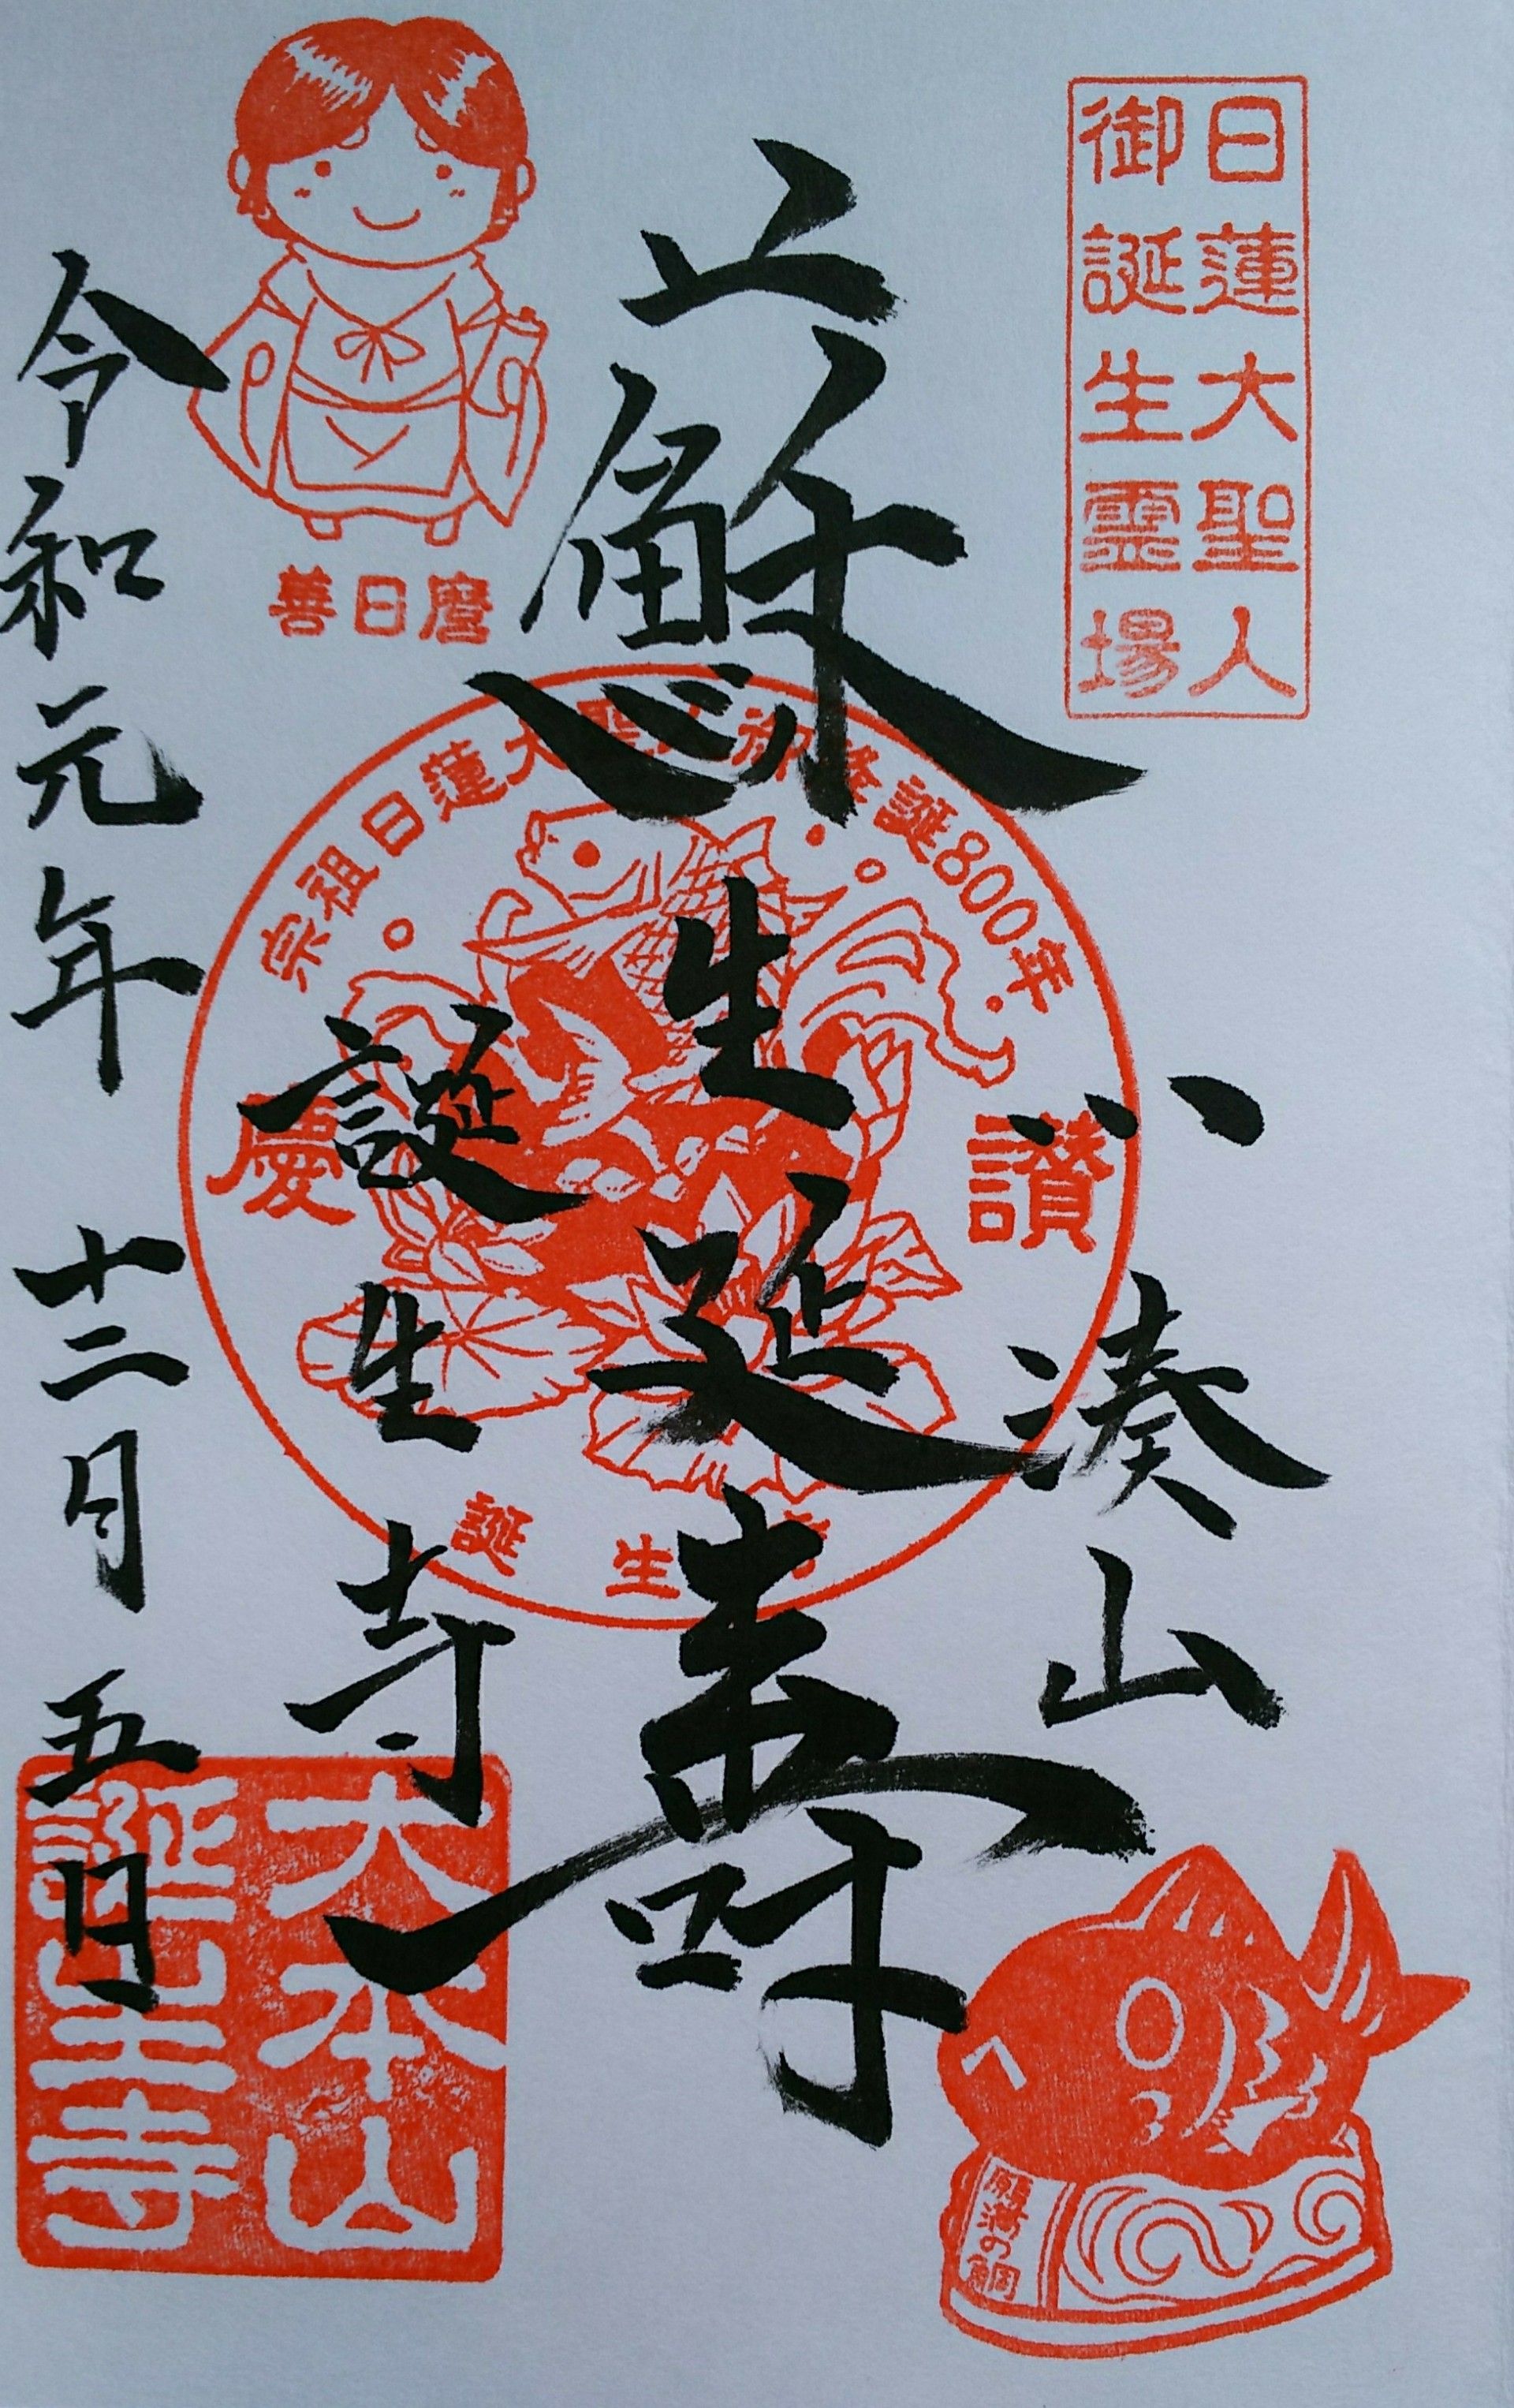 日蓮大聖人
御誕生霊場
蘇生延壽
小湊山
誕生寺
令和元年 十二月 五日
善日麿
宗祖日蓮大聖人御降誕800年
慶
讃
誕生寺
大本山
誕生寺
願満の鯛